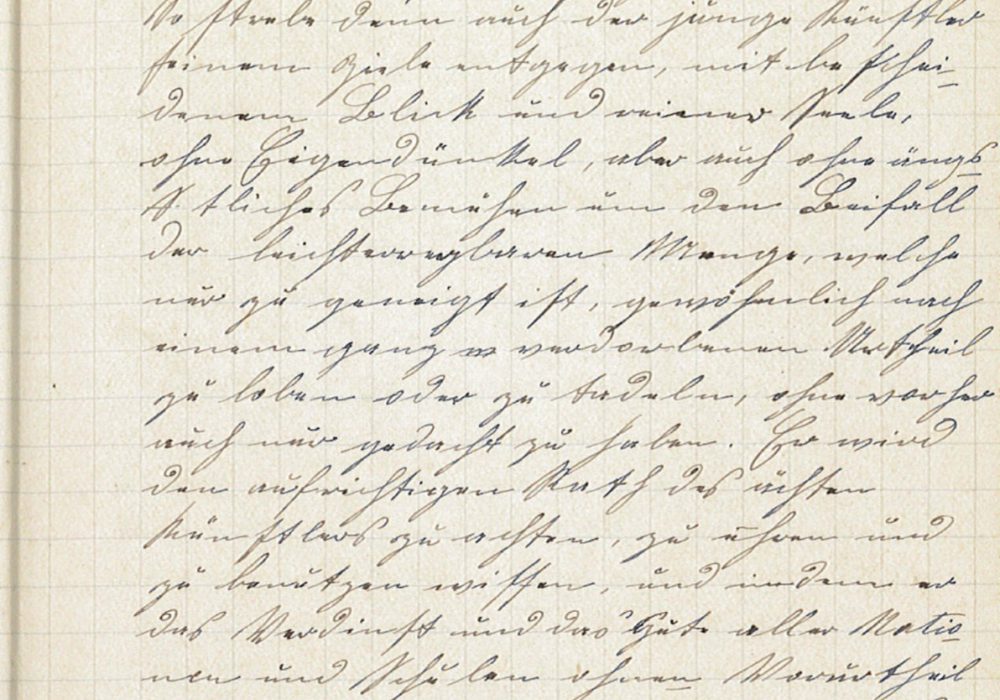 So strebe denn auch der junge Künstler
seinem Ziele entgegen, mit beschei-
denem Blick und reiner Seele,
ohne Eigendünkel, aber auch ohne ängs-
tliches Bemühen um den Beifall
der leichterregbaren Menge, welche
nur zu geneigt ist, gewöhnlich nach
einem ganz verdorbenen Urtheil
zu loben oder zu tadeln, ohne vorher
auch nur gedacht zu haben. Er wird
den aufrichtigen Rath des ächten
Künstlers zu achten, zu ehren und
zu benutzen wissen, und indem er
das Verdinst und das Gute aller Natio-
nen und Schulen ohne Vorurtheil